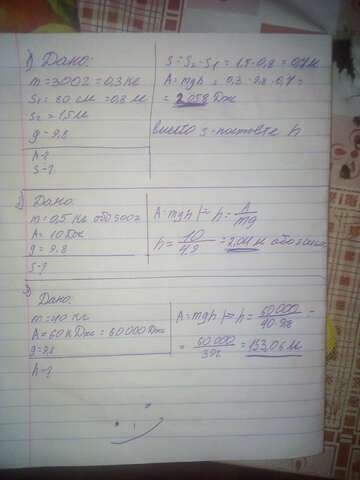 1) Дано:
m = 300г = 0,3 кг
S₁ = 80 см = 0,8 м
S₂ = 1,5м
g = 9,8
A-?
S-?
S = S₂-S₁ = 1,5-0,8 = 0,7м
A = mgh = 0,3 · 9,8 · 0,7 =
= 2,058 Дж
вместо s-поставте h
2) Дано:
m = 0,5 кг або 500г
A = 10 Дж
g = 9,8
S-?
A = mgh |=> h = A/mg
h = 10/4,9 = 2,04 м або
3)
Дано:
m = 40 кг
A = 60 кДж = 60 000 Дж
g = 9,8
h-?
A = mgh |=> h = 60 000/40·9,8 =
= 60 000/392 = 153,06 м